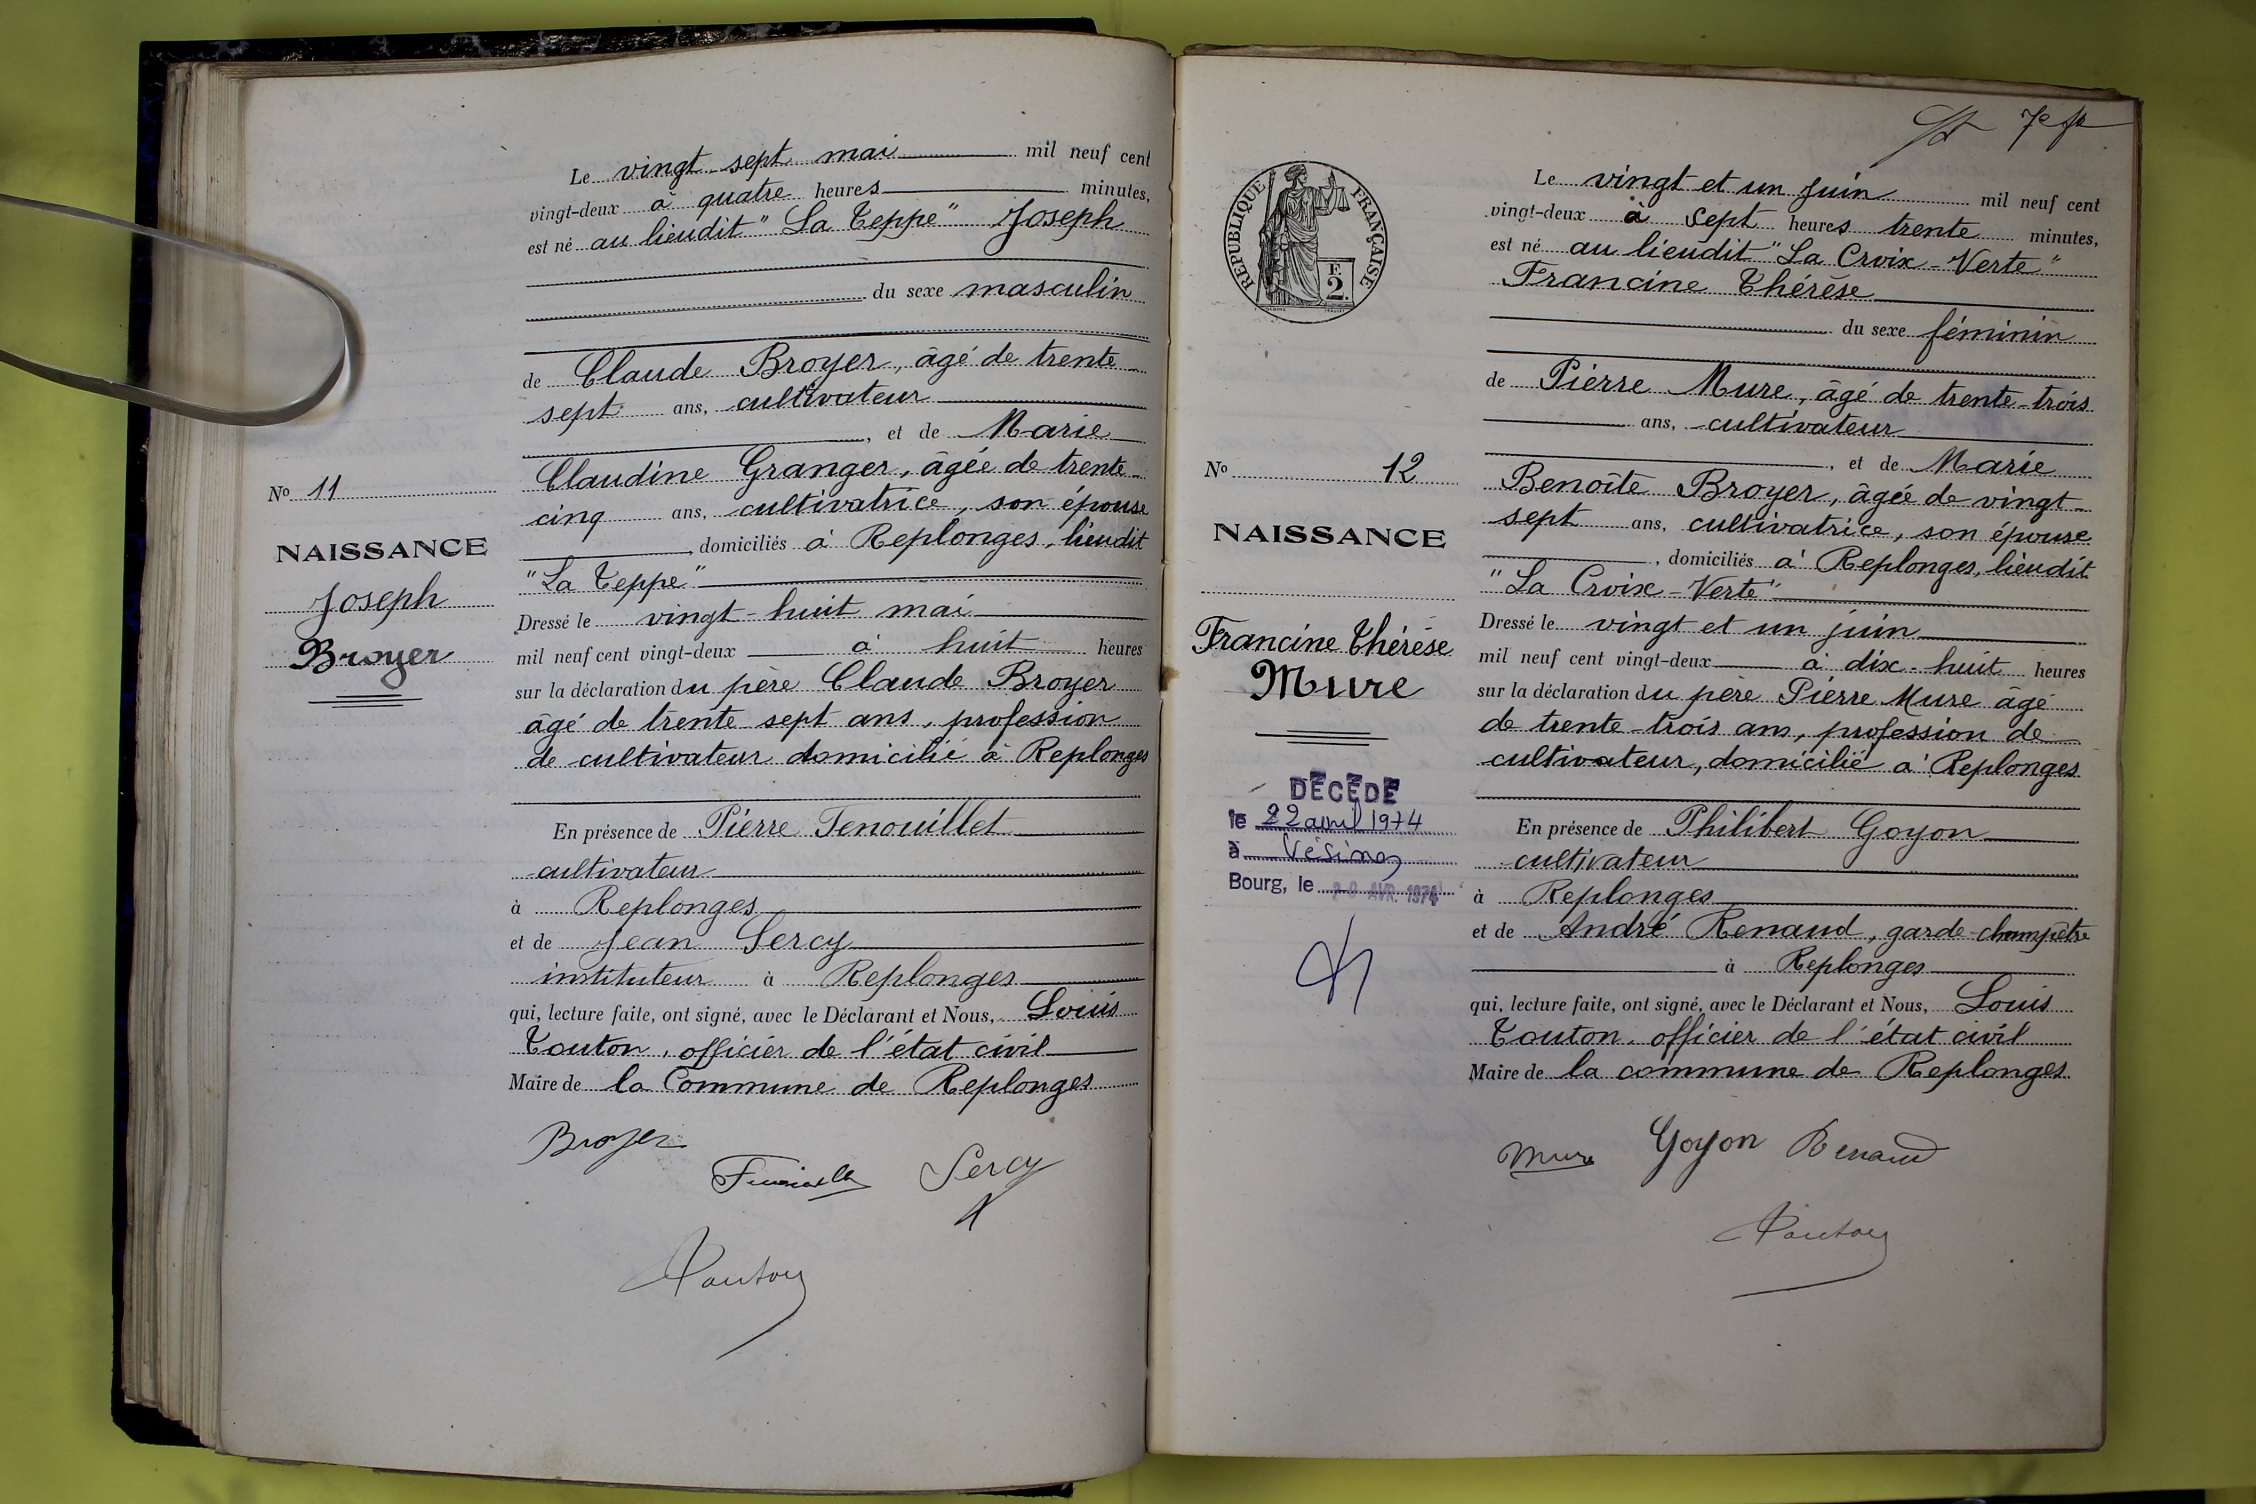 Le vingt sept mai mil neuf cent
vingt-deux à quatre heures minutes,
est né au lieudit "La Teppe" Joseph
du sexe masculin
de Claude Broyer, âgé de trente-
sept ans, cultivateur
, et de Marie
Claudine Granger, âgée de trente-
cinq ans, cultivatrice, son épouse
domiciliés à Replonges, lieudit
"La Teppe"
Dressé le vingt-huit mai
mil neuf cent vingt-deux à huit heures
sur la déclaration du père Claude Broyer
âgé de trente sept ans, profession
de cultivateur domicilié à Replonges
En présence de Pierre
cultivateur
à Replonges
et de Jean Sercy
instituteur à Replonges
qui, lecture faite, ont signé, avec le Déclarant et Nous, Louis
Touton, officier de l'état civil
Maire de la Commune de Replonges
Broyer
Sercy
Touton
No 11
NAISSANCE
Joseph
Broyer
7e
Le vingt et un juin mil neuf cent
vingt-deux à sept heures trente minutes,
est né au lieudit "La Croix-Verte"
Francine Thérèse
du sexe féminin
de Pierre Mure, âgé de trente-trois
ans, cultivateur
, et de Marie
Benoîte Broyer, âgée de vingt-
sept ans, cultivatrice, son épouse
, domiciliés à Replonges, lieudit
"La Croix-Verte"
Dressé le vingt et un juin
mil neuf cent vingt-deux à dix-huit heures
sur la déclaration du père Pierre Mure âgé
de trente-trois ans, profession de
cultivateur, domicilié à Replonges
En présence de Philibert Goyon
cultivateur
à Replonges
et de André Renaud, garde-champêtre
à Replonges
qui, lecture faite, ont signé, avec le Déclarant et Nous, Louis
Touton, officier de l'état civil
Maire de la commune de Replonges
Mure Goyon Renaud
Touton
RÉPUBLIQUE FRANÇAISE
F.
2.
No 12
NAISSANCE
Francine Thérèse
Mure
DÉCÉDÉ
le 22 avril 1974
à Vésines
Bourg, le AVR. 1974